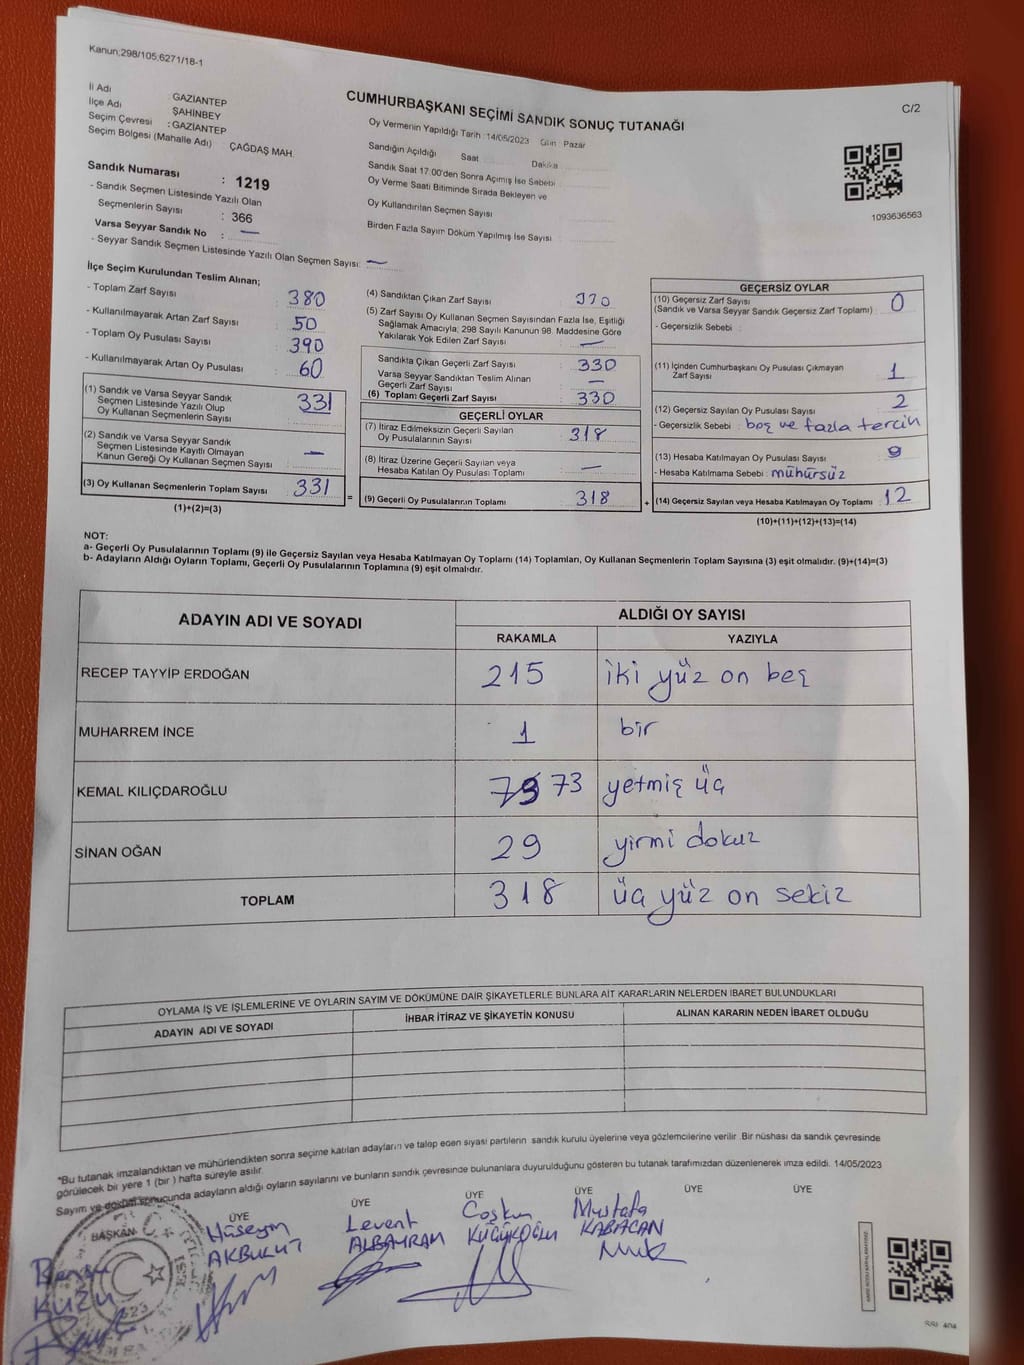 Kanun;298/105;6271/18-1
C/2
CUMHURBAŞKANI SEÇİMİ SANDIK SONUÇ TUTANAĞI
İl Adı GAZİANTEP
İlçe Adı ŞAHİNBEY
Seçim Çevresi : GAZİANTEP
Seçim Bölgesi (Mahalle Adı) ÇAĞDAŞ MAH.
Sandık Numarası : 1219
- Sandık Seçmen Listesinde Yazılı Olan
Seçmenlerin Sayısı : 366
Varsa Seyyar Sandık No : —
- Seyyar Sandık Seçmen Listesinde Yazılı Olan Seçmen Sayısı: —
Oy Vermenin Yapıldığı Tarih : 14/05/2023 Gün : Pazar
Sandığın Açıldığı Saat Dakika
Sandık Saat 17.00'den Sonra Açımış İse Sebebi
Oy Verme Saati Bitiminde Sırada Bekleyen ve
Oy Kullandırılan Seçmen Sayısı
Birden Fazla Sayım Döküm Yapılmış İse Sayısı
1093636563
İlçe Seçim Kurulundan Teslim Alınan;
- Toplam Zarf Sayısı : 380
- Kullanılmayarak Artan Zarf Sayısı : 50
- Toplam Oy Pusulası Sayısı : 390
- Kullanılmayarak Artan Oy Pusulası : 60
(1) Sandık ve Varsa Seyyar Sandık
Seçmen Listesinde Yazılı Olup
Oy Kullanan Seçmenlerin Sayısı : 331
(2) Sandık ve Varsa Seyyar Sandık
Seçmen Listesinde Kayıtlı Olmayan
Kanun Gereği Oy Kullanan Seçmen Sayısı : —
(3) Oy Kullanan Seçmenlerin Toplam Sayısı : 331
(1)+(2)=(3)
=
(4) Sandıktan Çıkan Zarf Sayısı
(5) Zarf Sayısı Oy Kullanan Seçmen Sayısından Fazla İse, Eşitliği
Sağlamak Amacıyla; 298 Sayılı Kanunun 98. Maddesine Göre
Yakılarak Yok Edilen Zarf Sayısı : —
Sandıkta Çıkan Geçerli Zarf Sayısı : 330
Varsa Seyyar Sandıktan Teslim Alınan
Geçerli Zarf Sayısı : —
(6) Toplam Geçerli Zarf Sayısı : 330
GEÇERLİ OYLAR
(7) İtiraz Edilmeksizin Geçerli Sayılan
Oy Pusulalarının Sayısı : 318
(8) İtiraz Üzerine Geçerli Sayılan veya
Hesaba Katılan Oy Pusulası Toplamı : —
(9) Geçerli Oy Pusulalarının Toplamı : 318
+
GEÇERSİZ OYLAR
(10) Geçersiz Zarf Sayısı
(Sandık ve Varsa Seyyar Sandık Geçersiz Zarf Toplamı) : 0
- Geçersizlik Sebebi :
(11) İçinden Cumhurbaşkanı Oy Pusulası Çıkmayan
Zarf Sayısı : 1
(12) Geçersiz Sayılan Oy Pusulası Sayısı : 2
- Geçersizlik Sebebi : boş ve fazla tercih
(13) Hesaba Katılmayan Oy Pusulası Sayısı : 9
- Hesaba Katılmama Sebebi : mühürsüz
(14) Geçersiz Sayılan veya Hesaba Katılmayan Oy Toplamı : 12
(10)+(11)+(12)+(13)=(14)
NOT:
a- Geçerli Oy Pusulalarının Toplamı (9) ile Geçersiz Sayılan veya Hesaba Katılmayan Oy Toplamı (14) Toplamları, Oy Kullanan Seçmenlerin Toplam Sayısına (3) eşit olmalıdır. (9)+(14)=(3)
b- Adayların Aldığı Oyların Toplamı, Geçerli Oy Pusulalarının Toplamına (9) eşit olmalıdır.
ADAYIN ADI VE SOYADI ALDIĞI OY SAYISI
RAKAMLA YAZIYLA
RECEP TAYYİP ERDOĞAN 215 iki yüz on beş
MUHARREM İNCE 1 bir
KEMAL KILIÇDAROĞLU 73 yetmiş üç
SİNAN OĞAN 29 yirmi dokuz
TOPLAM 318 üç yüz on sekiz
OYLAMA İŞ VE İŞLEMLERİNE VE OYLARIN SAYIM VE DÖKÜMÜNE DAİR ŞİKAYETLERLE BUNLARA AİT KARARLARIN NELERDEN İBARET BULUNDUKLARI
ADAYIN ADI VE SOYADI İHBAR İTİRAZ VE ŞİKAYETİN KONUSU ALINAN KARARIN NEDEN İBARET OLDUĞU
"Bu tutanak imzalandıktan ve mühürlendikten sonra seçime katılan adayların ve talep eden siyasi partilerin sandık kurulu üyelerine veya gözlemcilerine verilir .Bir nüshası da sandık çevresinde
görülecek bir yere 1 (bir ) hafta süreyle asılır.
Sayım ve döküm sonucunda adayların aldığı oyların sayılarını ve bunların sandık çevresinde bulunanlara duyurulduğunu gösteren bu tutanak tarafımızdan düzenlenerek imza edildi. 14/05/2023
BAŞKAN ÜYE ÜYE ÜYE ÜYE ÜYE ÜYE
KUZU
Hüseyin AKBULUT
Levent ALBAYRAK
Coşkun KÜÇÜKOĞLU
Mustafa KABACAN